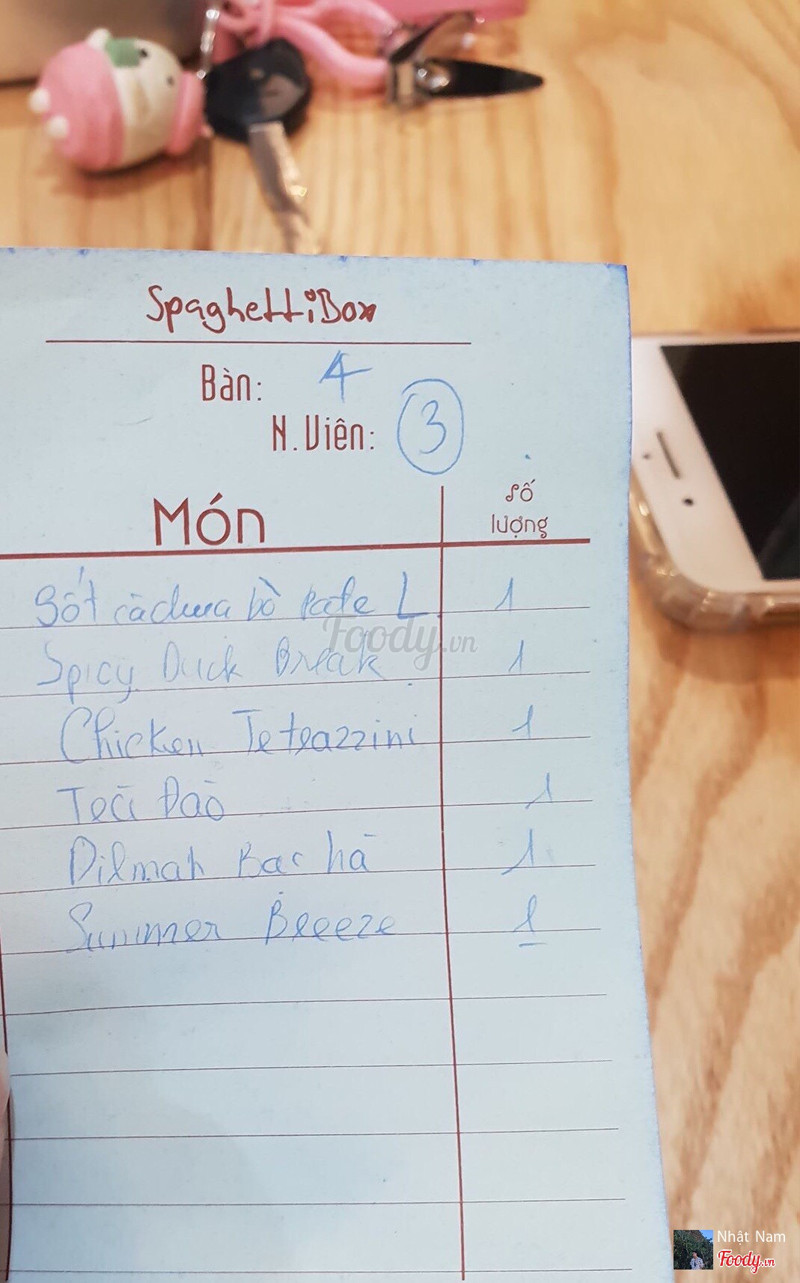 SpaghettiBox
Bàn: 4
N.Viên: 3
Món
số lượng
Sốt cà chua bò Pate L 1
Spicy Duck Break 1
Chicken Teteazzini 1
Đào 1
Dilmah Bạc hà 1
Summer Breeze 1
Foody.vn
Nhật Nam
Foody.vn